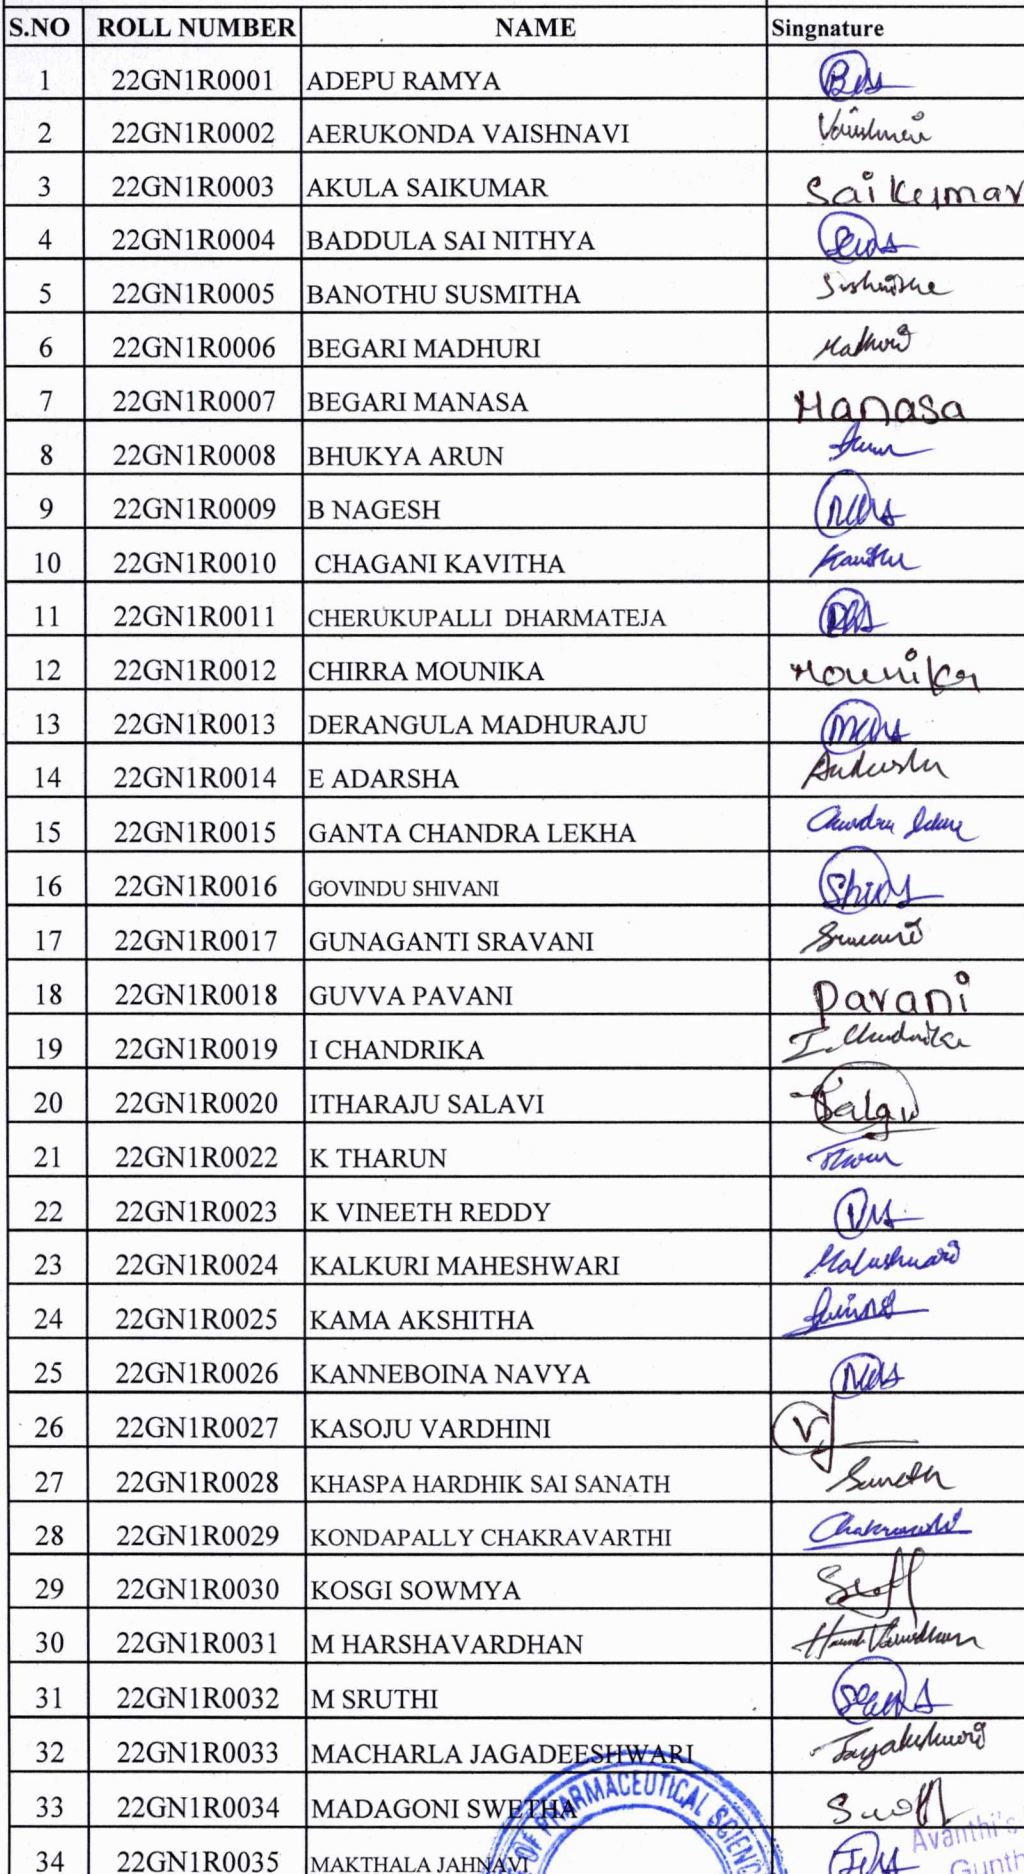 S.NO ROLL NUMBER NAME Singnature
1 22GN1R0001 ADEPU RAMYA
2 22GN1R0002 AERUKONDA VAISHNAVI Vaishnavi
3 22GN1R0003 AKULA SAIKUMAR Saikumar
4 22GN1R0004 BADDULA SAI NITHYA
5 22GN1R0005 BANOTHU SUSMITHA
6 22GN1R0006 BEGARI MADHURI Madhuri
7 22GN1R0007 BEGARI MANASA Manasa
8 22GN1R0008 BHUKYA ARUN Arun
9 22GN1R0009 B NAGESH
10 22GN1R0010 CHAGANI KAVITHA Kavitha
11 22GN1R0011 CHERUKUPALLI DHARMATEJA
12 22GN1R0012 CHIRRA MOUNIKA Mounika
13 22GN1R0013 DERANGULA MADHURAJU
14 22GN1R0014 E ADARSHA
15 22GN1R0015 GANTA CHANDRA LEKHA Chandra
16 22GN1R0016 GOVINDU SHIVANI
17 22GN1R0017 GUNAGANTI SRAVANI Sravani
18 22GN1R0018 GUVVA PAVANI Pavani
19 22GN1R0019 I CHANDRIKA I. Chandrika
20 22GN1R0020 ITHARAJU SALAVI
21 22GN1R0022 K THARUN Tharun
22 22GN1R0023 K VINEETH REDDY
23 22GN1R0024 KALKURI MAHESHWARI Maheshwari
24 22GN1R0025 KAMA AKSHITHA
25 22GN1R0026 KANNEBOINA NAVYA
26 22GN1R0027 KASOJU VARDHINI V
27 22GN1R0028 KHASPA HARDHIK SAI SANATH Sanath
28 22GN1R0029 KONDAPALLY CHAKRAVARTHI Chakravarthi
29 22GN1R0030 KOSGI SOWMYA
30 22GN1R0031 M HARSHAVARDHAN Harsha Vardhan
31 22GN1R0032 M SRUTHI
32 22GN1R0033 MACHARLA JAGADEESHWARI
33 22GN1R0034 MADAGONI SWETHA
OF PHARMACEUTICAL
Avanthi's
34 22GN1R0035 MAKTHALA JAHNAVI